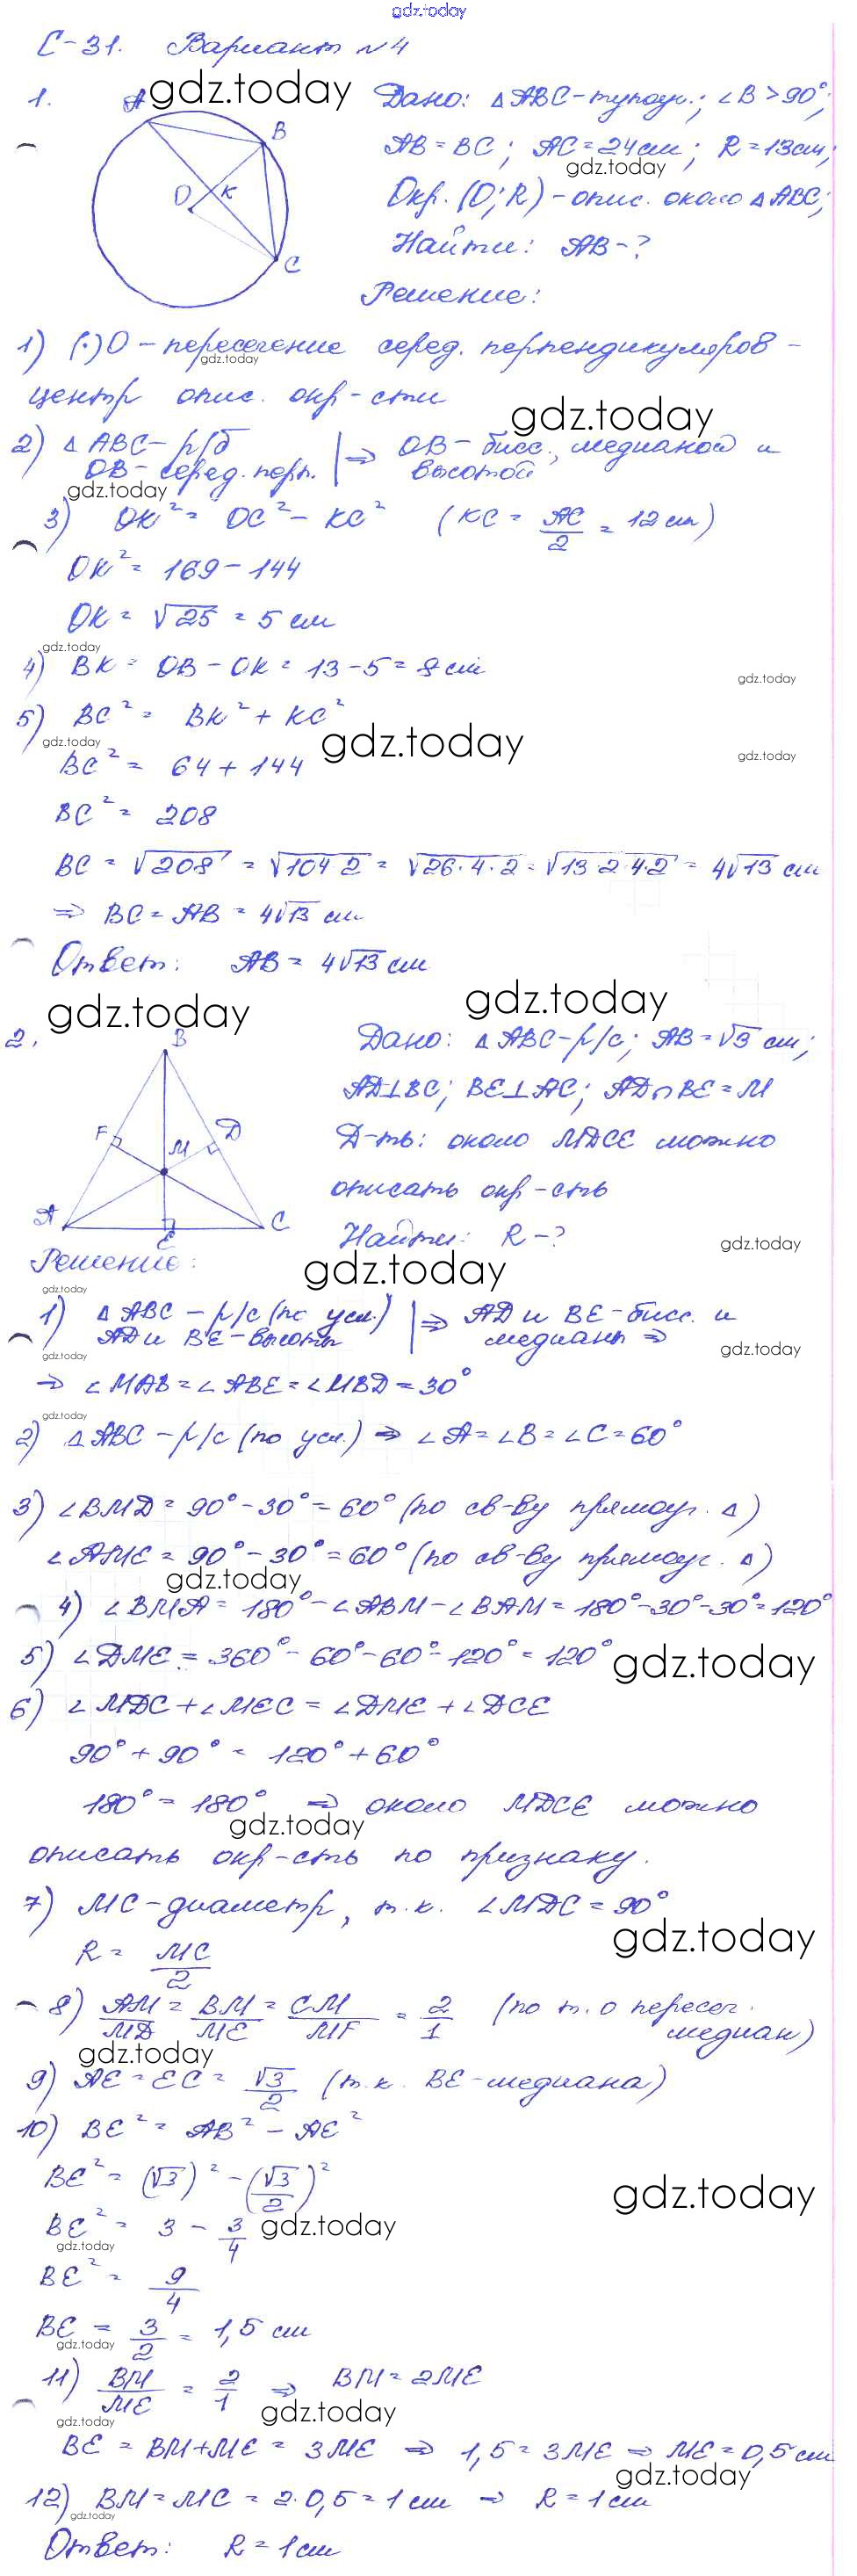 gdz.today
С-31. Вариант №4
1. A gdz.today Дано: △ABC-тупоуг.; ∠B>90°;
B
AB=BC; AC=24см; R=13см;
gdz.today
O K Окр.(O;R)-опис. около △ABC;
Найти: AB-?
C
Решение:
1) (·)O-пересечение серед. перпендикуляров-
gdz.today
центр опис. окр-сти
gdz.today
2) △ABC-р/б | ⇒ OB-бисс., медианой и
OB-серед. перп. | высотой
gdz.today
3) OK²= OC²-KC² (KC= AC/2 = 12см)
OK²= 169-144
OK= √25 = 5 см
gdz.today
4) BK= OB-OK= 13-5=8 см
gdz.today
5) BC²= BK²+KC²
gdz.today gdz.today gdz.today
BC²= 64+144
BC²= 208
BC= √208 = √104·2 = √26·4·2 = √13·2·4·2 = 4√13 см
⇒ BC=AB= 4√13 см
Ответ: AB= 4√13 см
gdz.today gdz.today
2. B Дано: △ABC-р/с; AB=√3 см;
AD⊥BC; BE⊥AC; AD∩BE=M
F M D Д-ть: около MDCE можно
описать окр-сть
A E C Найти: R-?
gdz.today
Решение: gdz.today
gdz.today
1) △ABC-р/с (по усл.) | ⇒ AD и BE-бисс. и
AD и BE-высоты | медианы ⇒
gdz.today gdz.today
⇒ ∠MAB=∠ABE=∠MBD=30°
gdz.today
2) △ABC-р/с (по усл.) ⇒ ∠A=∠B=∠C=60°
3) ∠BMD= 90°-30°=60° (по св-ву прямоуг. △)
∠AME= 90°-30°=60° (по св-ву прямоуг. △)
gdz.today
4) ∠BMA= 180°-∠ABM-∠BAM=180°-30°-30°=120°
5) ∠DME= 360°-60°-60°-120°=120° gdz.today
6) ∠MDC+∠MEC=∠DME+∠DCE
90°+90°= 120°+60°
180°=180° ⇒ около MDCE можно
gdz.today
описать окр-сть по признаку.
7) MC-диаметр, т.к. ∠MDC=90°
gdz.today
R= MC/2
8) AM/MD = BM/ME = CM/MF = 2/1 (по т. о пересеч. медиан)
gdz.today
9) AE=EC= √3/2 (т.к. BE-медиана)
10) BE²= AB²-AE²
BE²= (√3)²-(√3/2)²
gdz.today
BE²= 3-3/4 gdz.today
gdz.today
BE²= 9/4
BE= 3/2 = 1,5 см
gdz.today
11) BM/ME = 2/1 ⇒ BM=2ME
gdz.today
gdz.today
BE=BM+ME=3ME ⇒ 1,5=3ME ⇒ ME=0,5см
gdz.today
12) BM=MC=2·0,5=1см ⇒ R=1см
gdz.today
Ответ: R=1см